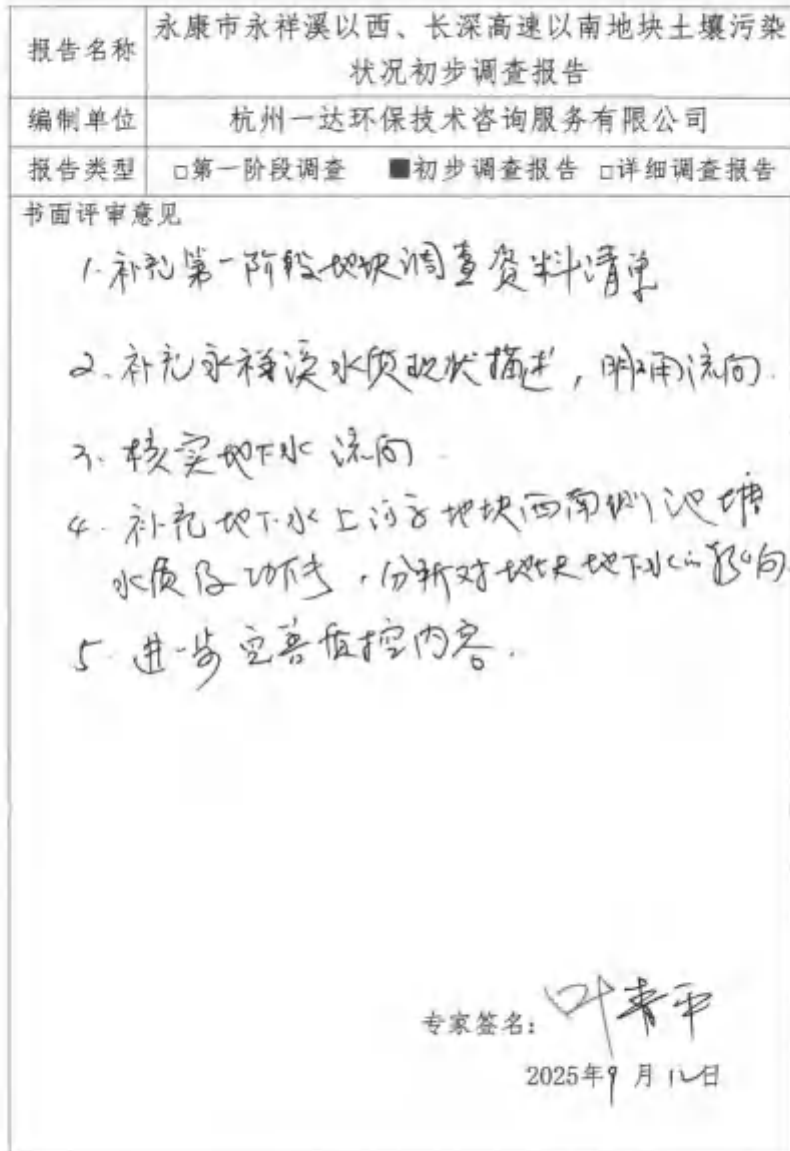 报告名称 永康市永祥溪以西、长深高速以南地块土壤污染
状况初步调查报告
编制单位 杭州一达环保技术咨询服务有限公司
报告类型 □第一阶段调查 ■初步调查报告 □详细调查报告
书面评审意见
1.补充第一阶段地块调查资料清单
2.补充永祥溪水质现状描述，明确流向.
3.核实地下水流向.
4.补充地下水上游方地块西南侧池塘
水质及功能，分析对地块地下水的影响
5.进一步完善质控内容.
专家签名：叶青平
2025年9月12日